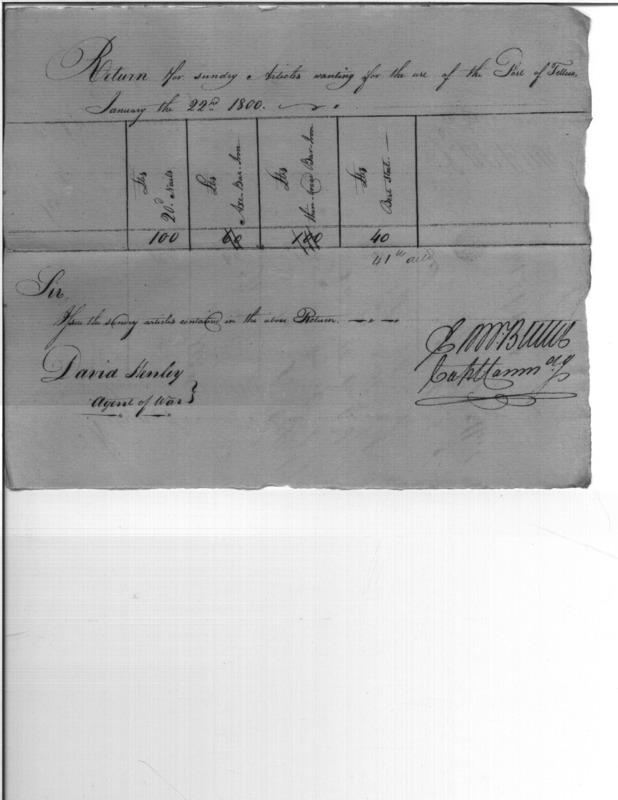 Return for sundry Articles wanting for the use of the Post of Tellico,
January the 22nd 1800.
lbs 20d. Nails
lbs Axe-Bar-Iron
lbs thin-broad Bar-Iron
lbs Best Steel.
100 60 100 40
41 lb
Sir,
Issue the sundry articles contained in the above Return.
David Henley
Agent of War
Capt Comm'dg